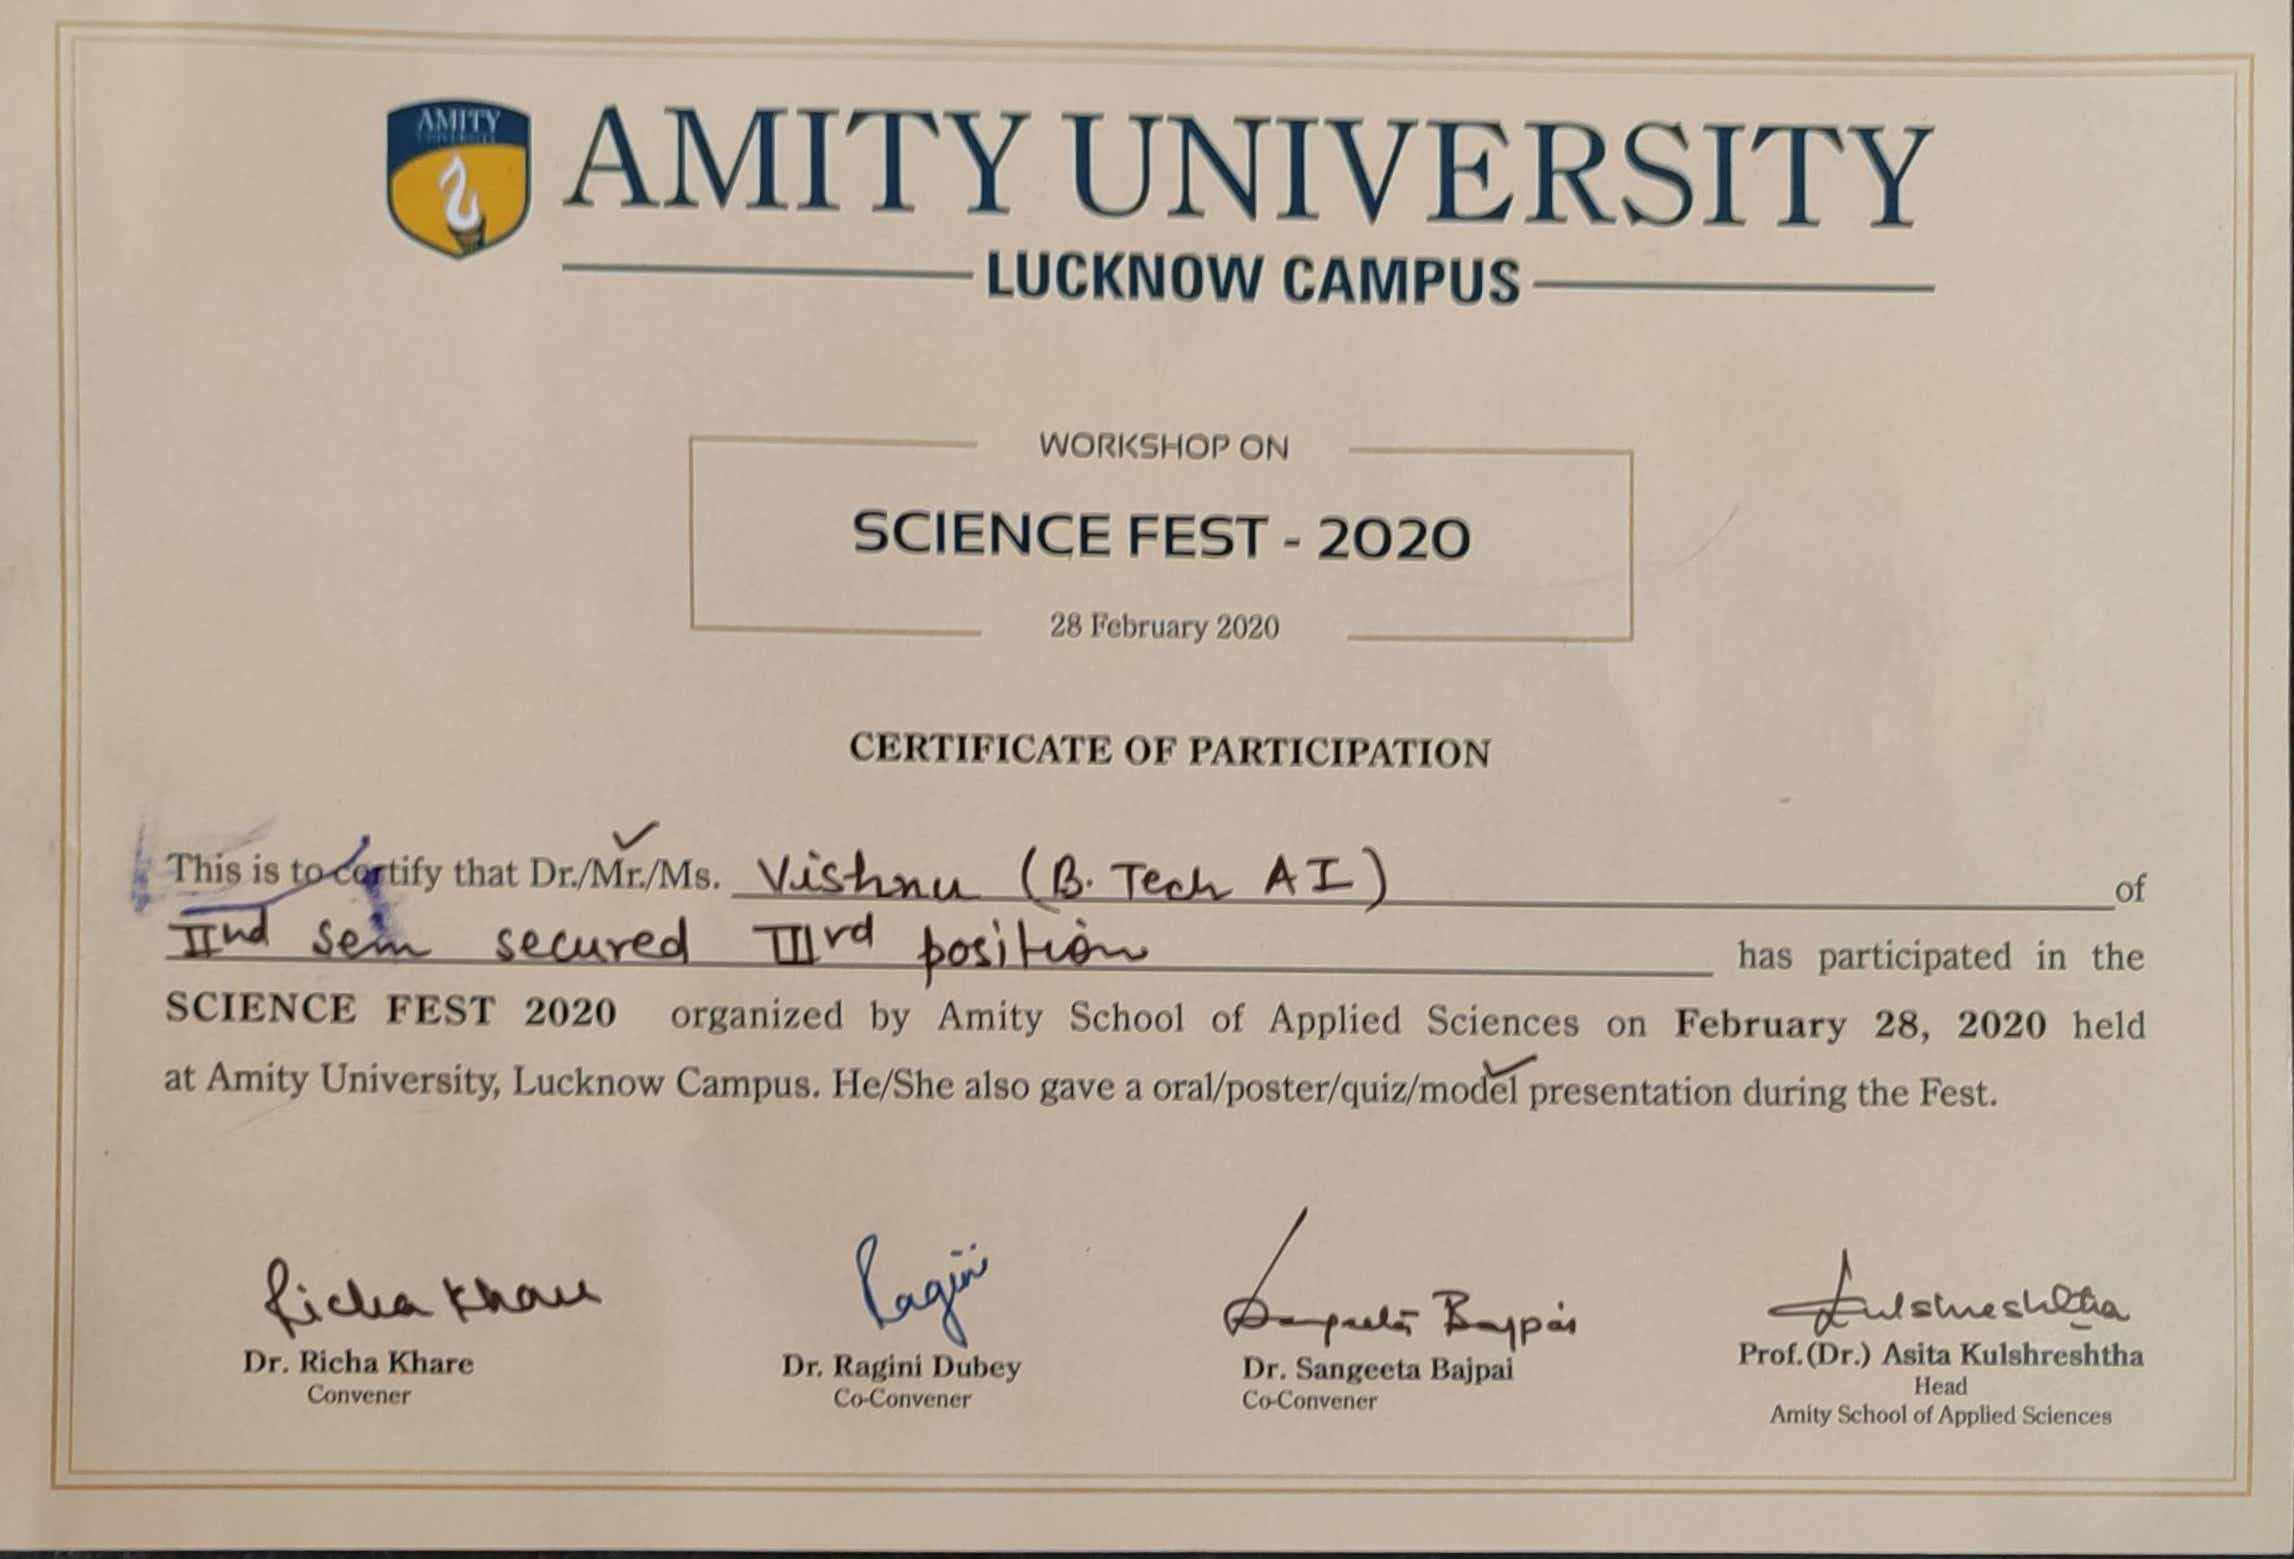 AMITY
UNIVERSITY
AMITY UNIVERSITY
LUCKNOW CAMPUS
WORKSHOP ON
SCIENCE FEST - 2020
28 February 2020
CERTIFICATE OF PARTICIPATION
This is to certify that Dr./Mr./Ms. Vishnu (B. Tech AI) of
IInd sem secured IIIrd position has participated in the
SCIENCE FEST 2020 organized by Amity School of Applied Sciences on February 28, 2020 held
at Amity University, Lucknow Campus. He/She also gave a oral/poster/quiz/model presentation during the Fest.
Richa Khare
Ragini
Sangeeta Bajpai
Kulshreshtha
Dr. Richa Khare
Convener
Dr. Ragini Dubey
Co-Convener
Dr. Sangeeta Bajpai
Co-Convener
Prof.(Dr.) Asita Kulshreshtha
Head
Amity School of Applied Sciences